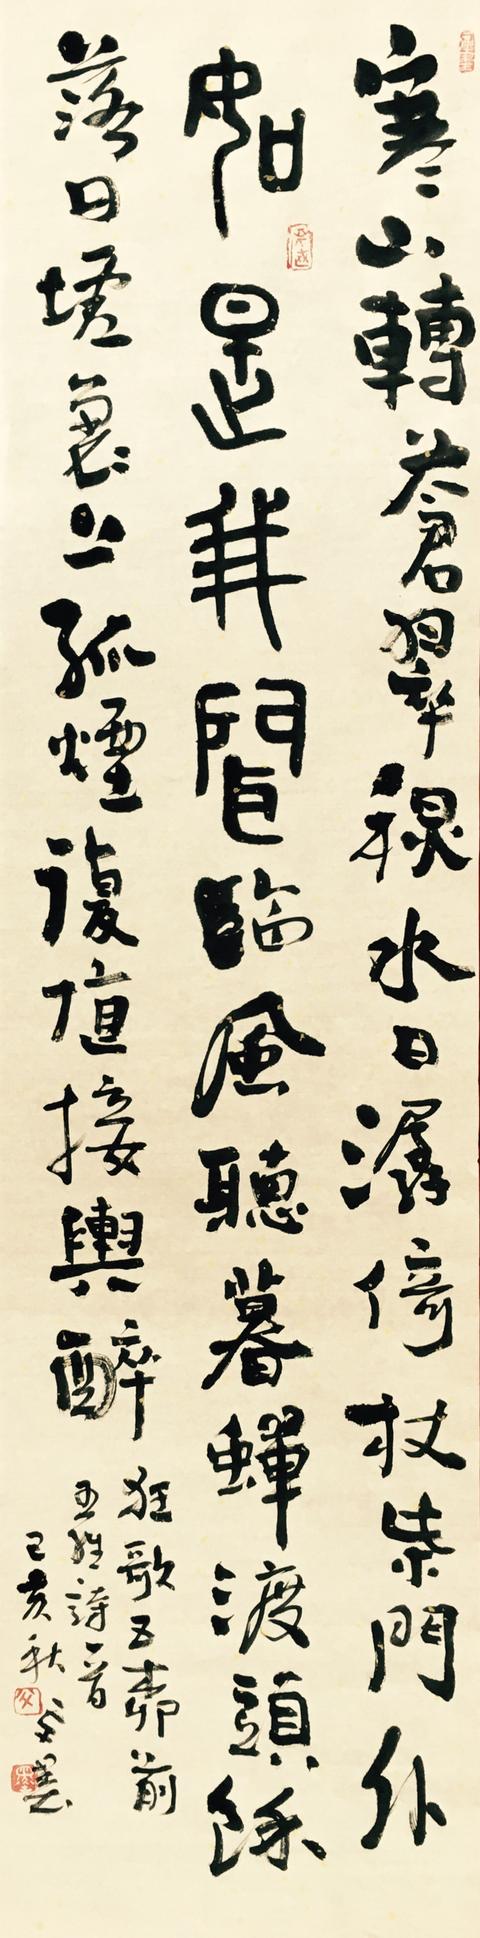 寒山轉蒼翠秋水日潺倚杖柴門外
如是我聞臨風聽暮蟬渡頭餘
落日墟裏上孤煙復值接輿醉
狂歌五柳前
王維詩一首
己亥秋